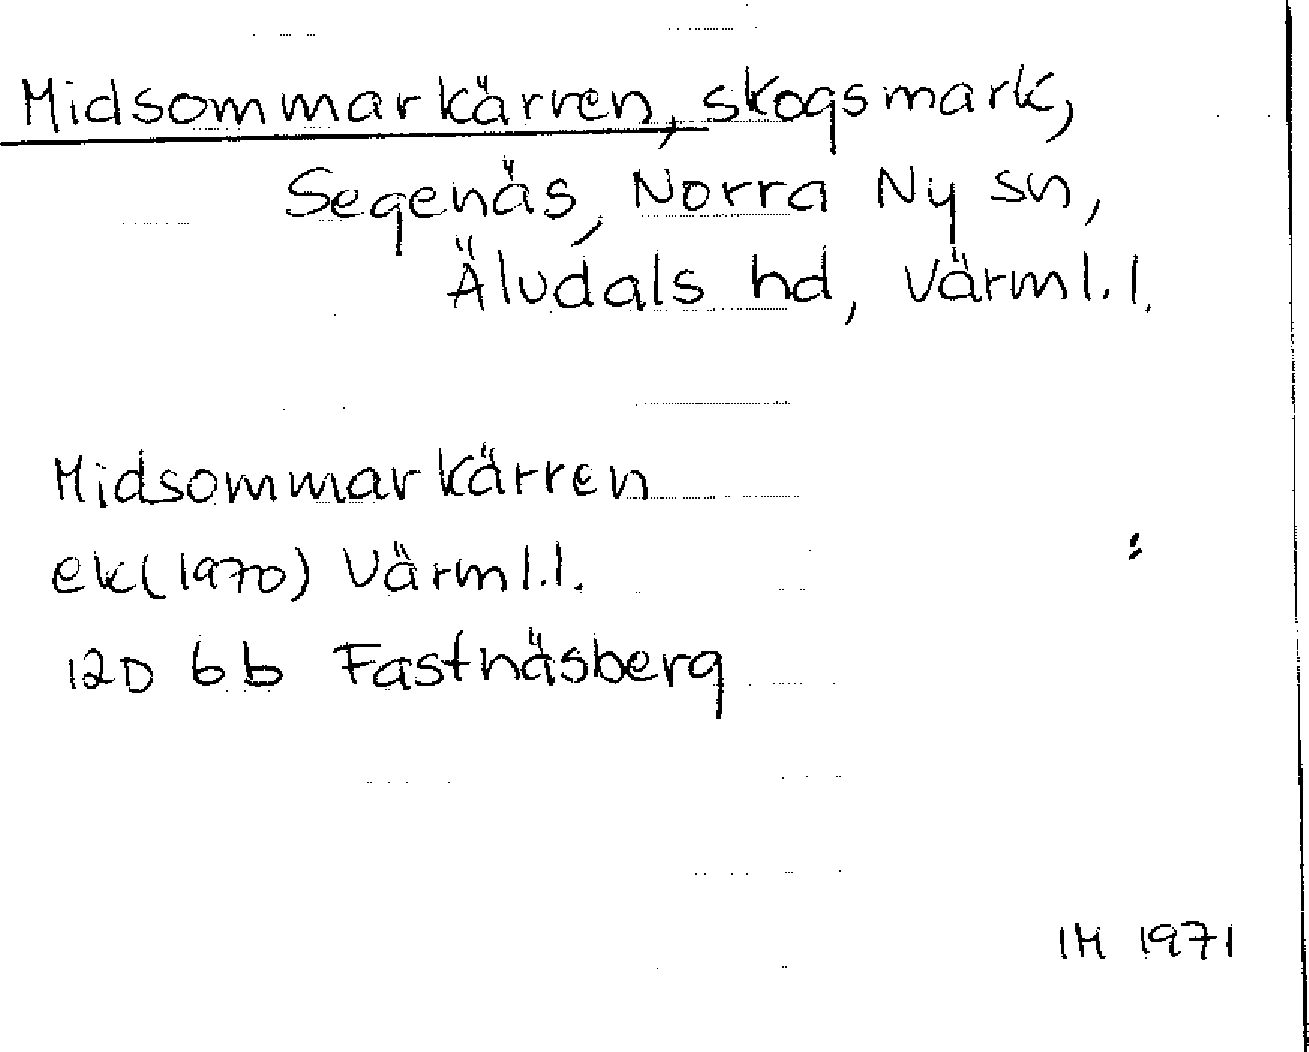 Midsommarkärren, skogsmark,
Segenäs, Norra Ny sn,
Älvdals hd, Värml. l.
Midsommarkärren
ek (1970) Värml. l.
12D 6b Fastnäsberg
IM 1971